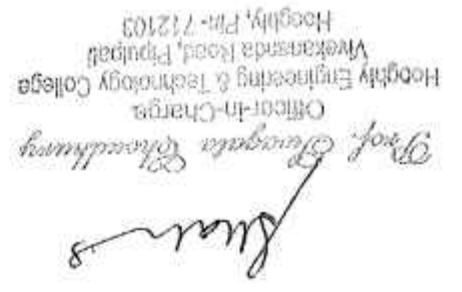 Prof. Swagata Choudhury
Officer-in-Charge
Hooghly Engineering & Technology College
Vivekananda Road, Pipulpati
Hooghly, Pin-712103